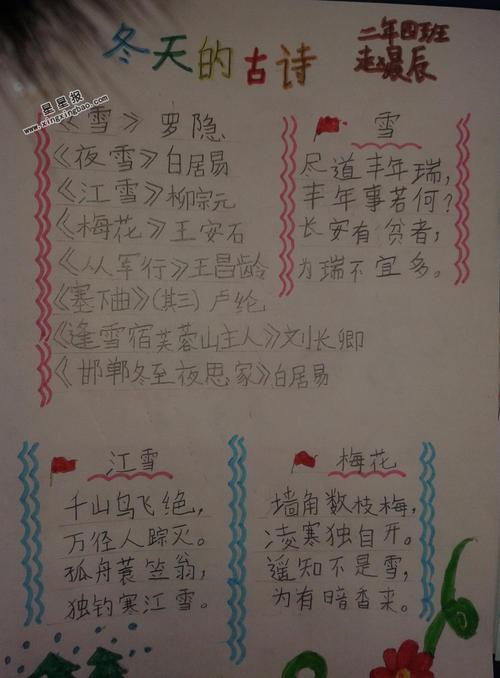 冬天的古诗
二年四班
赵晨辰
星星报
www.xingxingbao.com
《雪》 罗隐
《夜雪》白居易
《江雪》柳宗元
《梅花》王安石
《从军行》王昌龄
《塞下曲》(其三) 卢纶
《逢雪宿芙蓉山主人》刘长卿
《邯郸冬至夜思家》白居易
雪
尽道丰年瑞,
丰年事若何?
长安有贫者,
为瑞不宜多。
江雪
千山鸟飞绝,
万径人踪灭。
孤舟蓑笠翁,
独钓寒江雪。
梅花
墙角数枝梅,
凌寒独自开。
遥知不是雪,
为有暗香来。